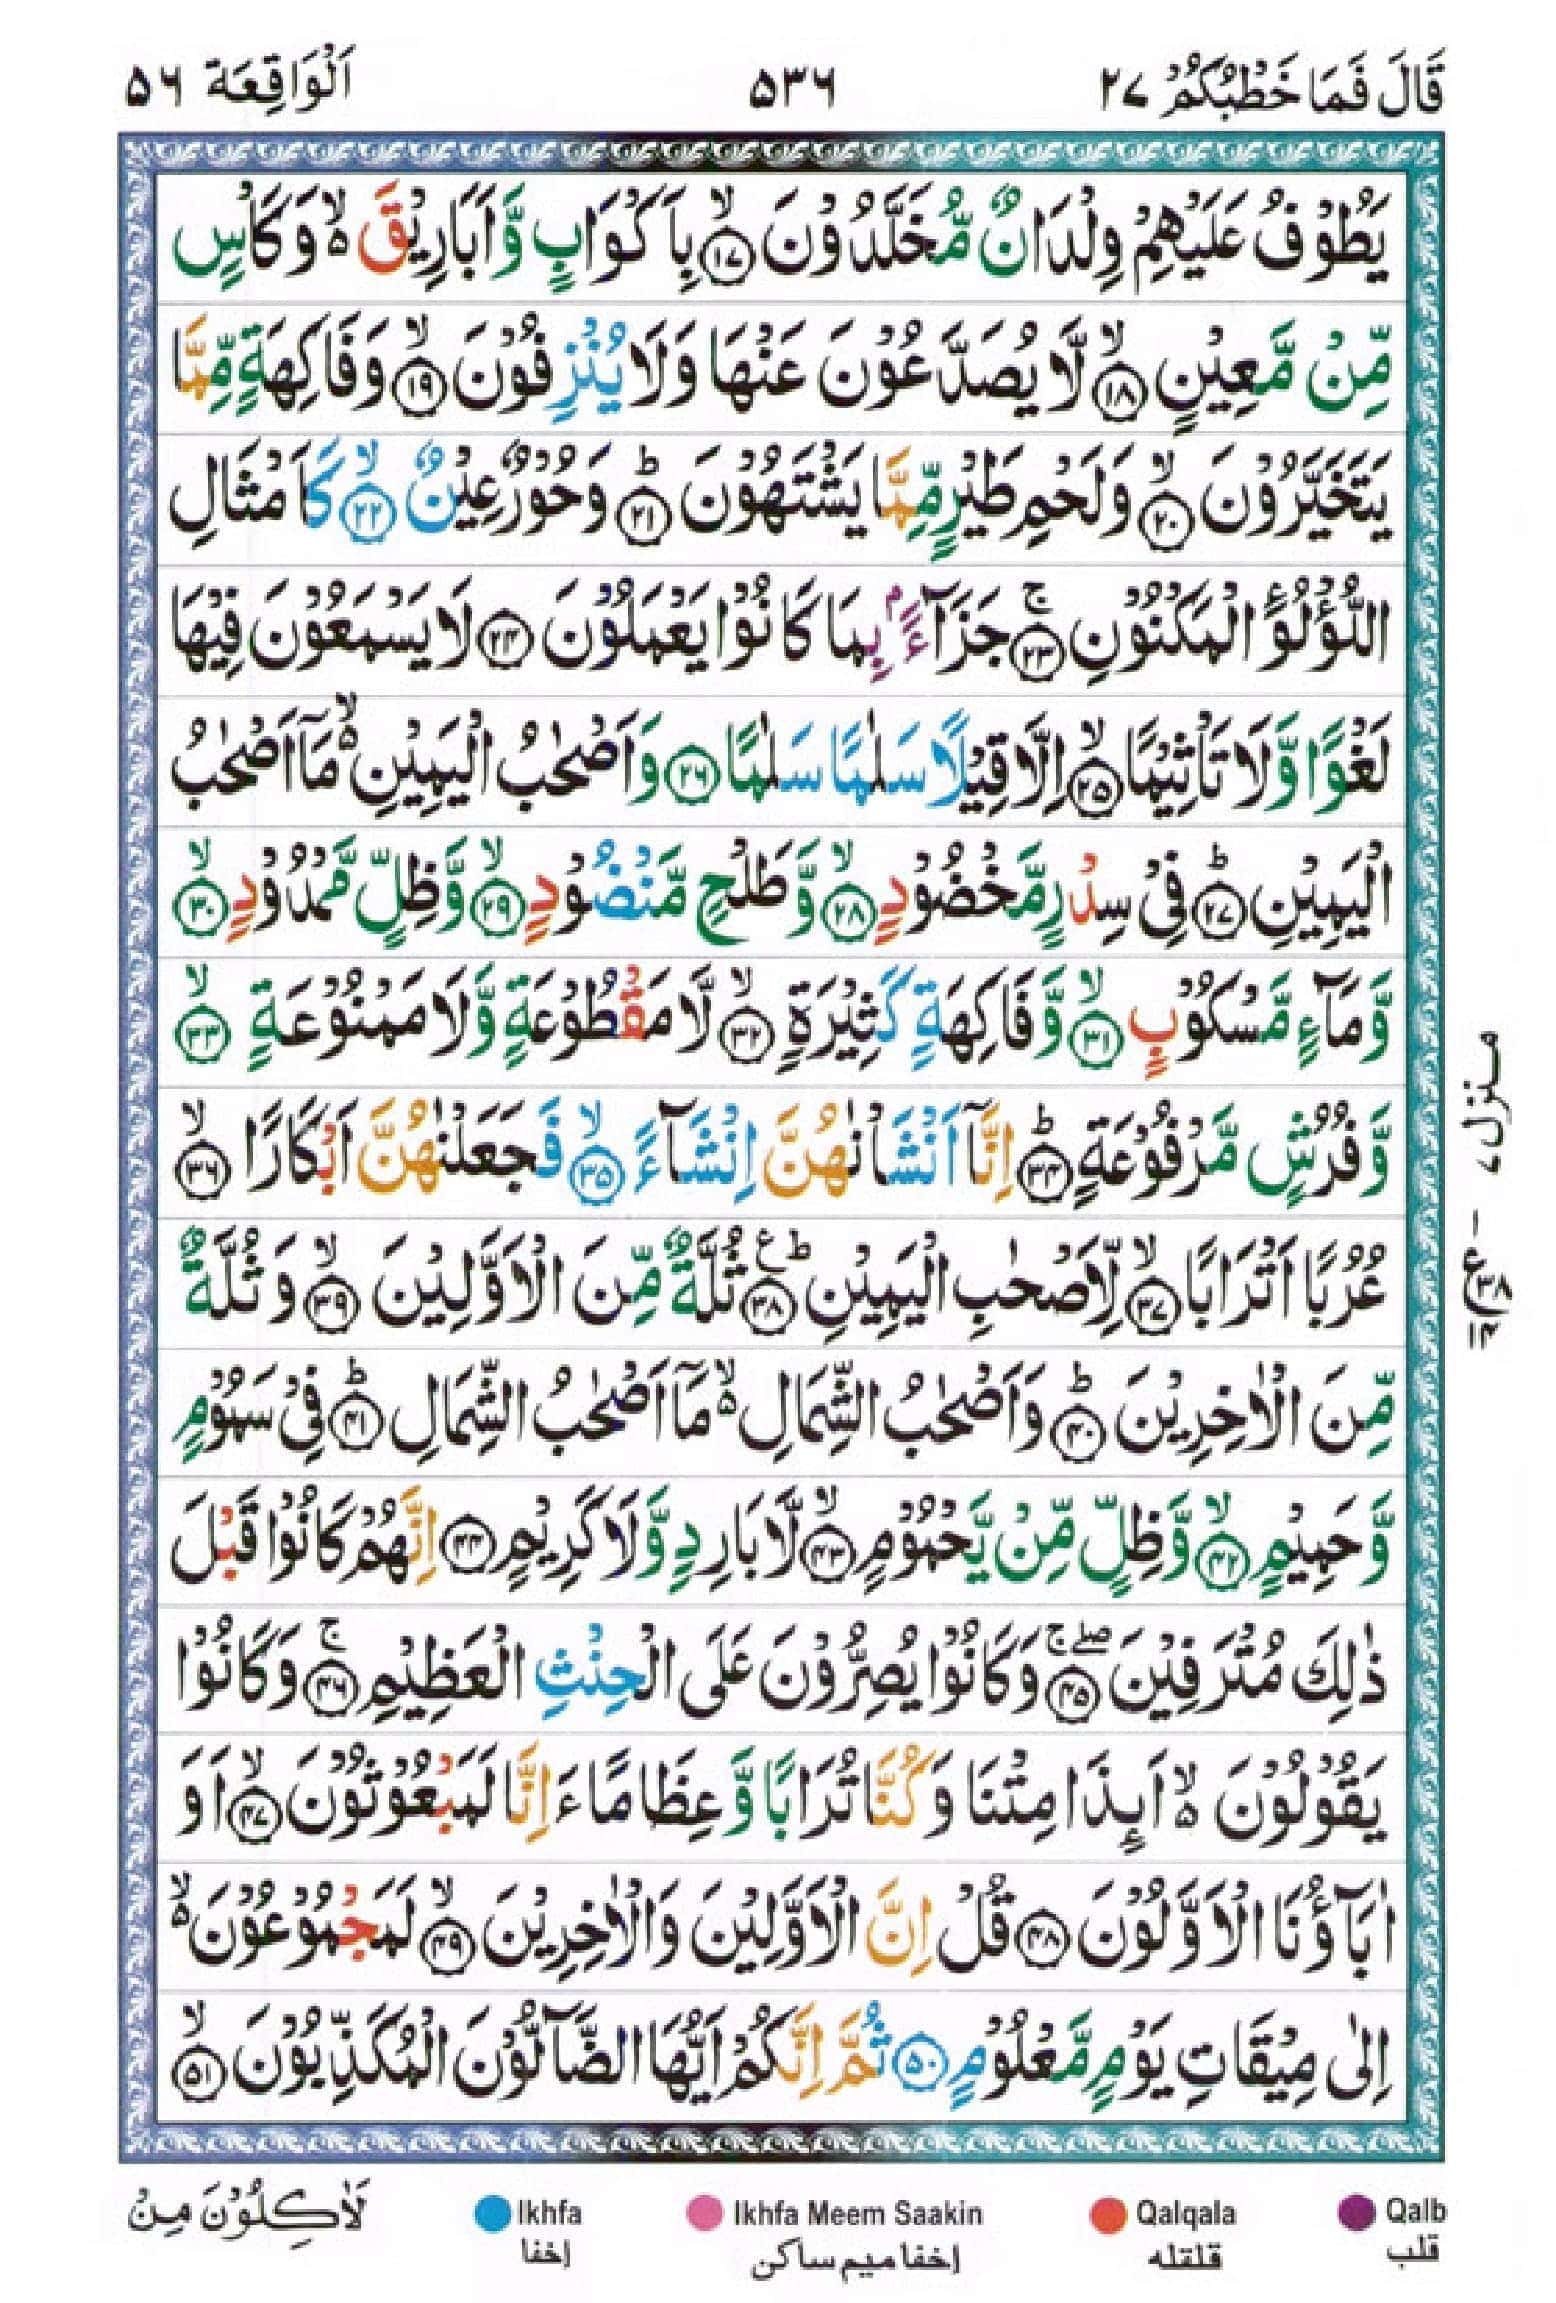 قَالَ فَمَا خَطْبُكُمْ ٢٧
٥٣٦
اَلْوَاقِعَة ٥٦
يَطُوْفُ عَلَيْهِمْ وِلْدَانٌ مُّخَلَّدُوْنَ ۙ‏﴿١٧﴾ بِاَكْوَابٍ وَّاَبَارِيْقَ ۙ۬ وَكَاْسٍ
مِّنْ مَّعِيْنٍ ۙ‏﴿١٨﴾ لَّا يُصَدَّعُوْنَ عَنْهَا وَلَا يُنْزِفُوْنَ ۙ‏﴿١٩﴾ وَفَاكِهَةٍ مِّمَّا
يَتَخَيَّرُوْنَ ۙ‏﴿٢٠﴾ وَلَحْمِ طَيْرٍ مِّمَّا يَشْتَهُوْنَ ؕ‏﴿٢١﴾ وَحُوْرٌ عِيْنٌ ۙ‏﴿٢٢﴾ كَاَمْثَالِ
اللُّؤْلُؤِ الْمَكْنُوْنِ ۚ‏﴿٢٣﴾ جَزَآءًۢ بِمَا كَانُوْا يَعْمَلُوْنَ ﴿٢٤﴾ لَا يَسْمَعُوْنَ فِيْهَا
لَغْوًا وَّلَا تَاْثِيْمًا ۙ‏﴿٢٥﴾ اِلَّا قِيْلًا سَلٰمًا سَلٰمًا ﴿٢٦﴾ وَاَصْحٰبُ الْيَمِيْنِ ۙ۬ مَاۤ اَصْحٰبُ
الْيَمِيْنِ ؕ‏﴿٢٧﴾ فِيْ سِدْرٍ مَّخْضُوْدٍ ۙ‏﴿٢٨﴾ وَّطَلْحٍ مَّنْضُوْدٍ ۙ‏﴿٢٩﴾ وَّظِلٍّ مَّمْدُوْدٍ ۙ‏﴿٣٠﴾
وَّمَآءٍ مَّسْكُوْبٍ ۙ‏﴿٣١﴾ وَّفَاكِهَةٍ كَثِيْرَةٍ ۙ‏﴿٣٢﴾ لَّا مَقْطُوْعَةٍ وَّلَا مَمْنُوْعَةٍ ۙ‏﴿٣٣﴾
وَّفُرُشٍ مَّرْفُوْعَةٍ ؕ‏﴿٣٤﴾ اِنَّاۤ اَنْشَاْنٰهُنَّ اِنْشَآءً ۙ‏﴿٣٥﴾ فَجَعَلْنٰهُنَّ اَبْكَارًا ۙ‏﴿٣٦﴾
عُرُبًا اَتْرَابًا ۙ‏﴿٣٧﴾ لِّاَصْحٰبِ الْيَمِيْنِ ؕع‏﴿٣٨﴾ ثُلَّةٌ مِّنَ الْاَوَّلِيْنَ ۙ‏﴿٣٩﴾ وَثُلَّةٌ
مِّنَ الْاٰخِرِيْنَ ؕ‏﴿٤٠﴾ وَاَصْحٰبُ الشِّمَالِ ۙ۬ مَاۤ اَصْحٰبُ الشِّمَالِ ؕ‏﴿٤١﴾ فِيْ سَمُوْمٍ
وَّحَمِيْمٍ ۙ‏﴿٤٢﴾ وَّظِلٍّ مِّنْ يَّحْمُوْمٍ ۙ‏﴿٤٣﴾ لَّا بَارِدٍ وَّلَا كَرِيْمٍ ﴿٤٤﴾ اِنَّهُمْ كَانُوْا قَبْلَ
ذٰلِكَ مُتْرَفِيْنَ ۖۚ‏﴿٤٥﴾ وَكَانُوْا يُصِرُّوْنَ عَلَى الْحِنْثِ الْعَظِيْمِ ۚ‏﴿٤٦﴾ وَكَانُوْا
يَقُوْلُوْنَ ۙ۬ اَىِٕذَا مِتْنَا وَكُنَّا تُرَابًا وَّعِظَامًا ءَاِنَّا لَمَبْعُوْثُوْنَ ۙ‏﴿٤٧﴾ اَوَ
اٰبَآؤُنَا الْاَوَّلُوْنَ ﴿٤٨﴾ قُلْ اِنَّ الْاَوَّلِيْنَ وَالْاٰخِرِيْنَ ۙ‏﴿٤٩﴾ لَمَجْمُوْعُوْنَ ۙ۬
اِلٰى مِيْقَاتِ يَوْمٍ مَّعْلُوْمٍ ﴿٥٠﴾ ثُمَّ اِنَّكُمْ اَيُّهَا الضَّآلُّوْنَ الْمُكَذِّبُوْنَ ۙ‏﴿٥١﴾
منزل ٧
ع ٣٨ ١٤
لَاٰكِلُوْنَ مِنْ
Ikhfa
إخفا
Ikhfa Meem Saakin
إخفا ميم ساكن
Qalqala
قلقله
Qalb
قلب